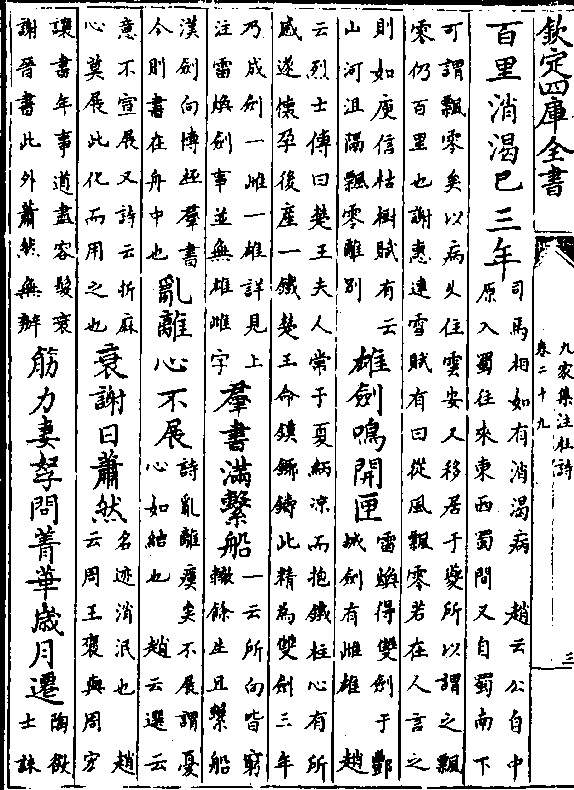 欽定四庫全書
九家集注杜詩
卷二十九
三
百里消渴已三年
司馬相如有消渴病 趙云公自中
原入蜀往來東西蜀間又自蜀南下
可謂飄零矣以病久住雲安又移居于夔所以謂之飄
零仍百里也謝惠連雪賦有曰從風飄零若在人言之
則如庾信枯樹賦有云
山河沮隔飄零離別
雄劍鳴開匣
雷煥得雙劍于酆
城劍有雌雄 趙
云烈士傳曰楚王夫人常于夏納凉而抱鐵柱心有所
感遂懷孕後產一鐵楚王命鏌鋣鑄此精為雙劍三年
乃成劍一雌一雄詳見上
注雷煥劍事並無雄雌字
羣書滿繫船
一云所向皆窮
轍餘生且繫船
漢劉向博極羣書
今則書在舟中也
亂離心不展
詩亂離瘼矣不展謂憂
心如結也 趙云選云
意不宣展又詩云折麻
心莫展此化而用之也
衰謝日蕭然
名迹消泯也 趙
云周王褒與周宏
讓書年事遒盡容髮衰
謝晉書此外蕭然無辦
筋力妻孥問菁華歲月遷
陶徴
士誄